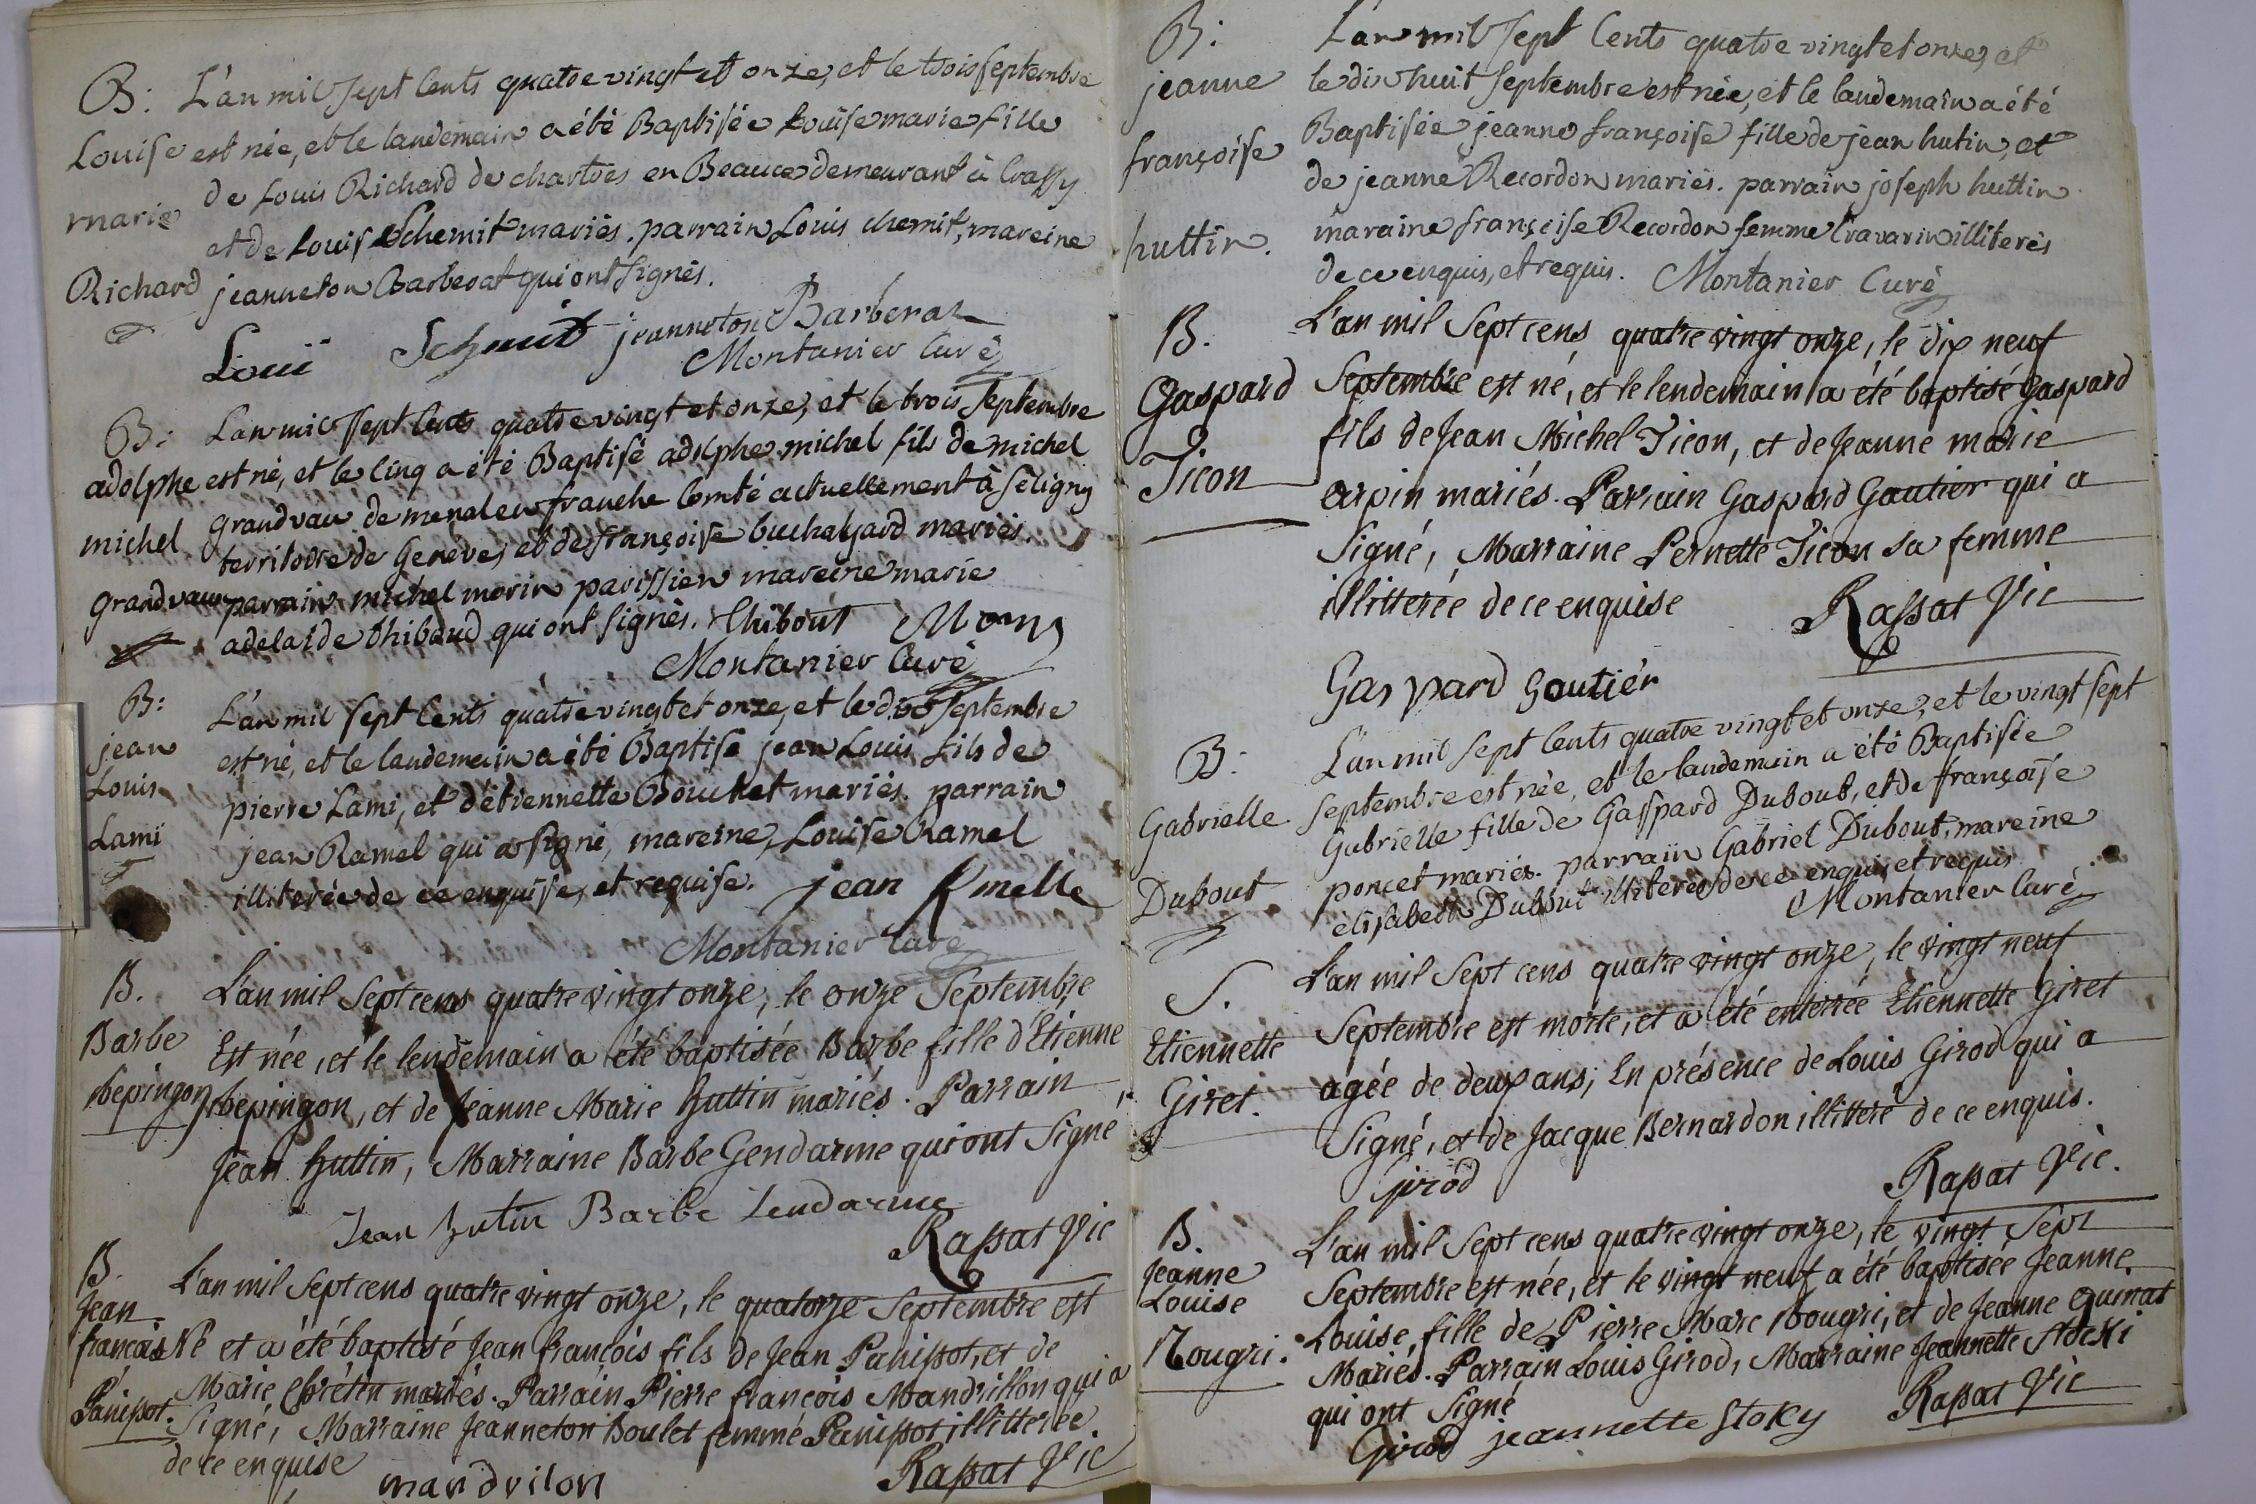 B: L'an mil sept cents quatre vingt et onze, et le trois septembre
Louise est née, et le landemain a été Baptisée Louise marie fille
de Louis Richard de chartres en Beauce demeurant à Crassy
marie
et de Louise Schemit mariés. parrain Louis chemit, mareine
Richard jeanneton Barberat qui ont signés.
Louii Schmit jeanneton Barberat
Montanier Curé
B: L'an mil sept cents quatre vingt et onze, et le trois septembre
adolphe est né, et le cinq a été Baptisé adolphe michel fils de michel
grandvau de menal en franche Comté actuellement à Seligny
michel
territoire de Geneve, et de françoise buchaljard mariés.
grandvaux parrain michel morin parissien mareine marie
adelaide thibaud qui ont signés. Thibout Morin
Montanier Curé
B: L'an mil sept cents quatre vingt et onze, et le dix septembre
jean est né, et le landemain a été Baptisé jean Louis fils de
Louis
pierre Lami, et d'étiennette Bouchet mariés. parrain
Lami jean Ramel qui a signé, mareine, Louise Ramel
illiterée de ce enquise, et requise. jean Rmelle
Montanier Curé
B. L'an mil sept cens quatre vingt onze, le onze Septembre
Barbe Est née, et le lendemain a été baptisée Barbe fille d'Etienne
Mepingon Mepingon, et de Jeanne Marie huttin mariés. Parrain
Jean huttin, Marraine Barbe Gendarme qui ont Signé
Jean hutin Barbe Jendarme
Rassat Vic
B. L'an mil Sept cens quatre vingt onze, le quatorze Septembre est
Jean
francois Né et a été baptisé Jean francois fils de Jean Panissot, et de
Marie Chrétin mariés. Parrain Pierre francois Mandrillon qui a
Panissot. Signé, Marraine Jeanneton Boulet femme Panissot illitterée
de ce enquise
mandrilon Rassat Vic
B: L'an mil sept Cents quatre vingt et onze, et
jeanne le dix huit septembre est née, et le landemain a été
Baptisée jeanne françoise fille de jean hutin, et
françoise
de jeanne Recordon mariés. parrain joseph huttin
huttin. maraine françoise Recordon femme travarin illiterés
de ce enquis, et requis. Montanier Curé
B. L'an mil Sept cens quatre vingt onze, le dix neuf
Gaspard Septembre est né, et le lendemain a été baptisé Gaspard
fils de Jean Michel Ticon, et de Jeanne marie
Ticon
arpin mariés. Parrain Gaspard Gautier qui a
Signé, Marraine Pernette Ticon sa femme
illitterée de ce enquise Rassat Vic
Gaspard Goutiér
B: L'an mil sept cents quatre vingt et onze, et le vingt sept
septembre est née, et le landemain a été Baptisée
Gabrielle Gabrielle fille de Gaspard Dubout, et de françoise
poncet mariés. parrain Gabriel Dubout, mareine
Dubout élisabeth Dubout illiterés de ce enquis, et requis
Montanier Curé
S. L'an mil Sept cens quatre vingt onze, le vingt neuf
Etiennette Septembre est morte, et a été enterrée Etiennette Giret
Giret. agée de deux ans; En présence de Louis Girod qui a
Signé, et de Jacque Bernardon illitteré de ce enquis.
girod Rassat Vic.
B. L'an mil Sept cens quatre vingt onze, le vingt Sept
Jeanne Septembre est née, et le vingt neuf a été baptisée Jeanne
Louise
Mougri. Louise, fille de Pierre Marc Mougri, et de Jeanne Guinat
Mariés. Parrain Louis Girod, Marraine Jeannette Stocki
qui ont Signé Rassat Vic
girod jeannette Stoky